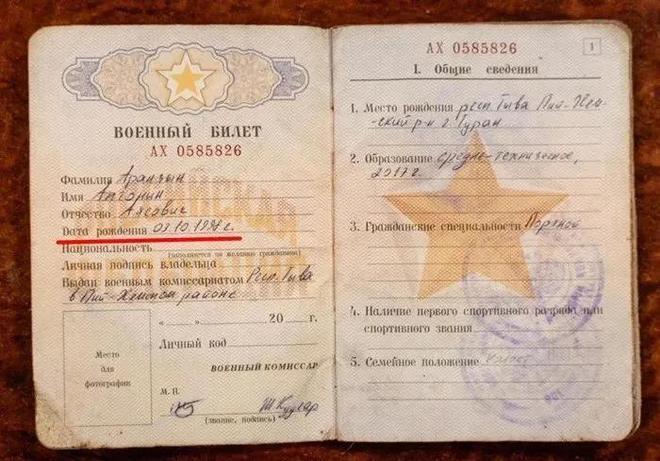 ВОЕННЫЙ БИЛЕТ
АХ 0585826
Фамилия
Имя
Отчество
Дата рождения 03.10.199 г.
Национальность
(заполняется по желанию гражданина)
Личная подпись владельца
Выдан военным комиссариатом Респ. Тыва
в Пий-Хемском районе
Место
для
фотографии
« » 20 г.
Личный код
ВОЕННЫЙ КОМИССАР
М. П.
(звание, подпись)
АХ 0585826
1
I. Общие сведения
1. Место рождения респ. Тыва Пий-Хем-
ский р-н г. Туран
2. Образование средне-техническое,
2017 г.
3. Гражданские специальности
4. Наличие первого спортивного разряда или
спортивного звания
5. Семейное положение